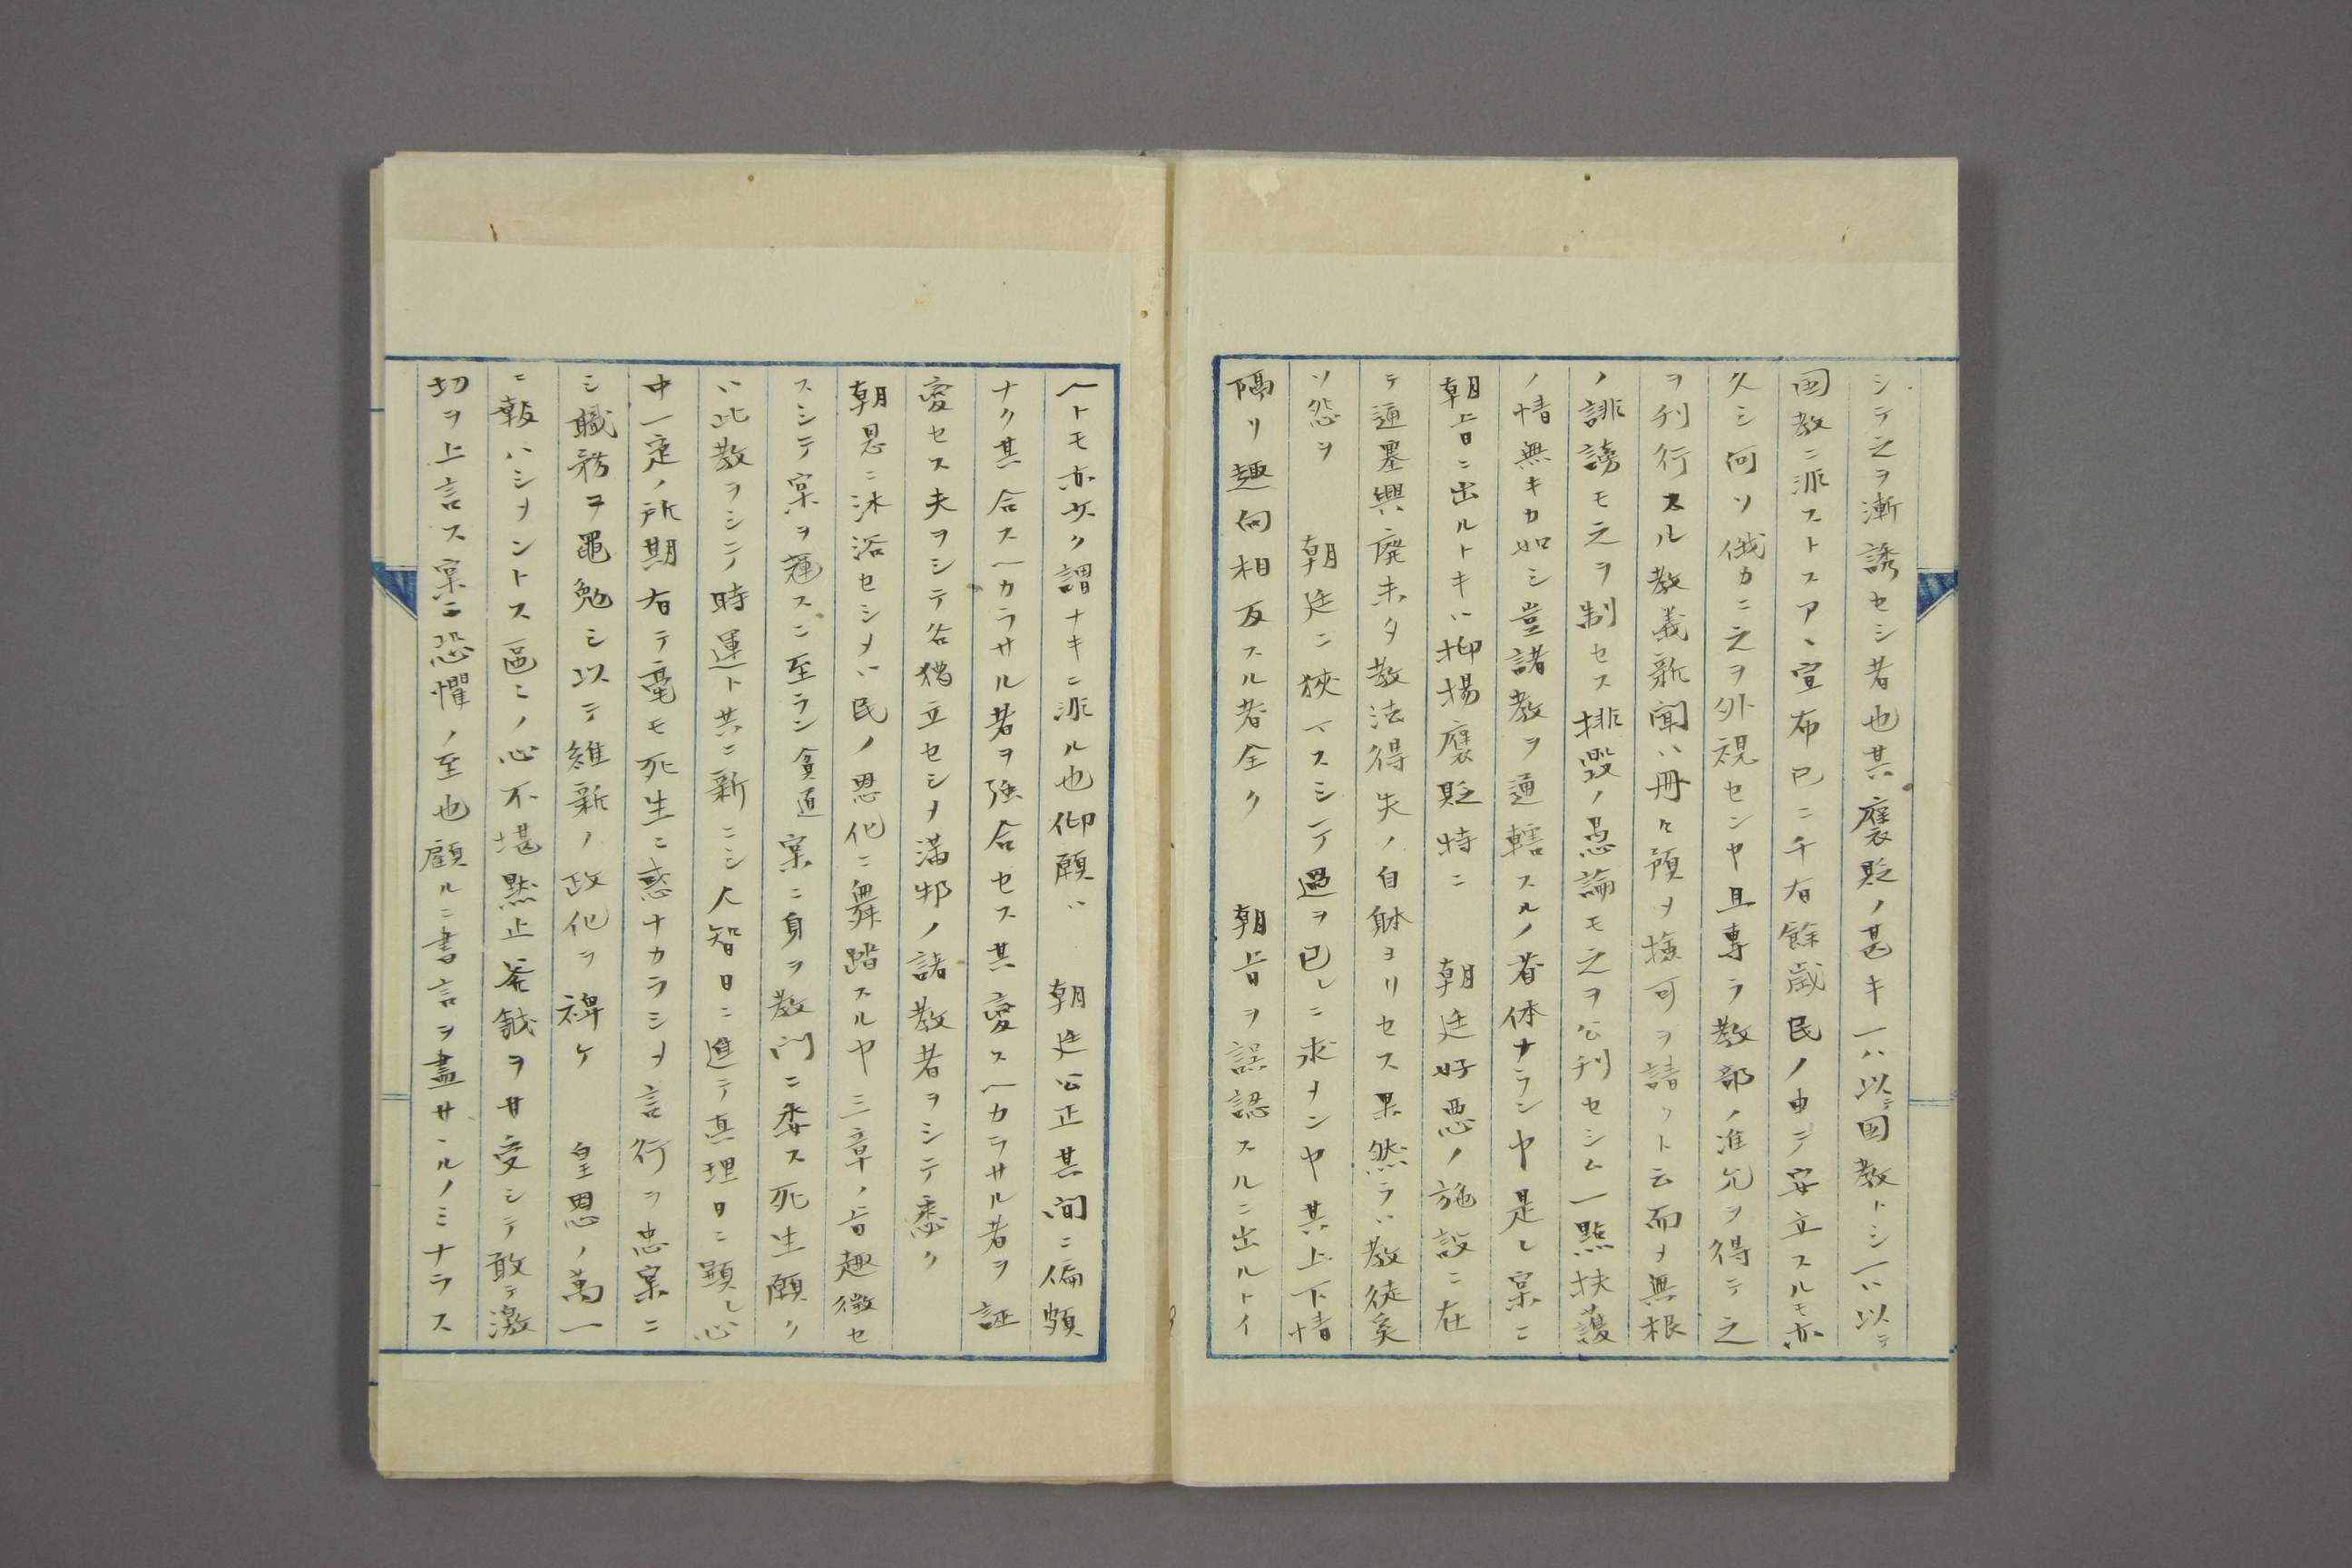 シテ之ヲ漸誘セシ者也其褒貶ノ甚キ一ハ以テ国教トシ一ハ以テ
国教ニ非ストスアヽ宣布已ニ千有餘歳民ノ由テ安立スルモ亦
久シ何ソ俄カニ之ヲ外視センヤ且専ラ教部ノ准允ヲ得テ之
ヲ刊行スル教義新聞ハ冊々預メ検可ヲ請クト云而メ無根
ノ誹謗モ之ヲ制セス排毀ノ愚論モ之ヲ公刊セシム一點扶護
ノ情無キカ如シ豈諸教ヲ通轄スルノ著体ナランヤ是レ寔ニ
朝旨ニ出ルトキハ抑揚褒貶時ニ　朝廷好悪ノ施設ニ在
テ通塞興廃未タ教法得失ノ自躰ヨリセス果然ラハ教徒奚
ソ怨ヲ　朝廷ニ狹マスシテ過ヲ已レニ求メンヤ其上下情
隔リ趣向相反スル者全ク　朝旨ヲ誤認スルニ出ルトイ
ヘトモ亦故ク謂ナキニ非ル也仰願ハ　朝廷公正其間ニ偏頗
ナク其合スヘカラサル者ヲ強合セス其変スヘカラサル者ヲ誣
変セス夫ヲシテ各獨立セシメ満邦ノ諸教者ヲシテ悉ク
朝恩ニ沐浴セシメハ民ノ恩化ニ舞踏スルヤ三章ノ旨趣徴セ
スシテ寔ヲ踵スニ至ラン貧道寔ニ身ヲ教門ニ委ス死生願ク
ハ此教ヲシテ時運ト共ニ新ニシ人智日ニ進テ真理日ニ顕レ心
中一定ノ所期有テ毫モ死生ニ惑ナカラシメ言行ヲ忠寔ニ
シ職務ヲ黽勉シ以テ維新ノ政化ヲ裨ケ　皇恩ノ萬一
ニ報ハシメントス區々ノ心不堪黙止斧鉞ヲ甘受シテ敢テ激
切ヲ上言ス寔ニ恐懼ノ至也顧ルニ書言ヲ盡サヽルノミナラス